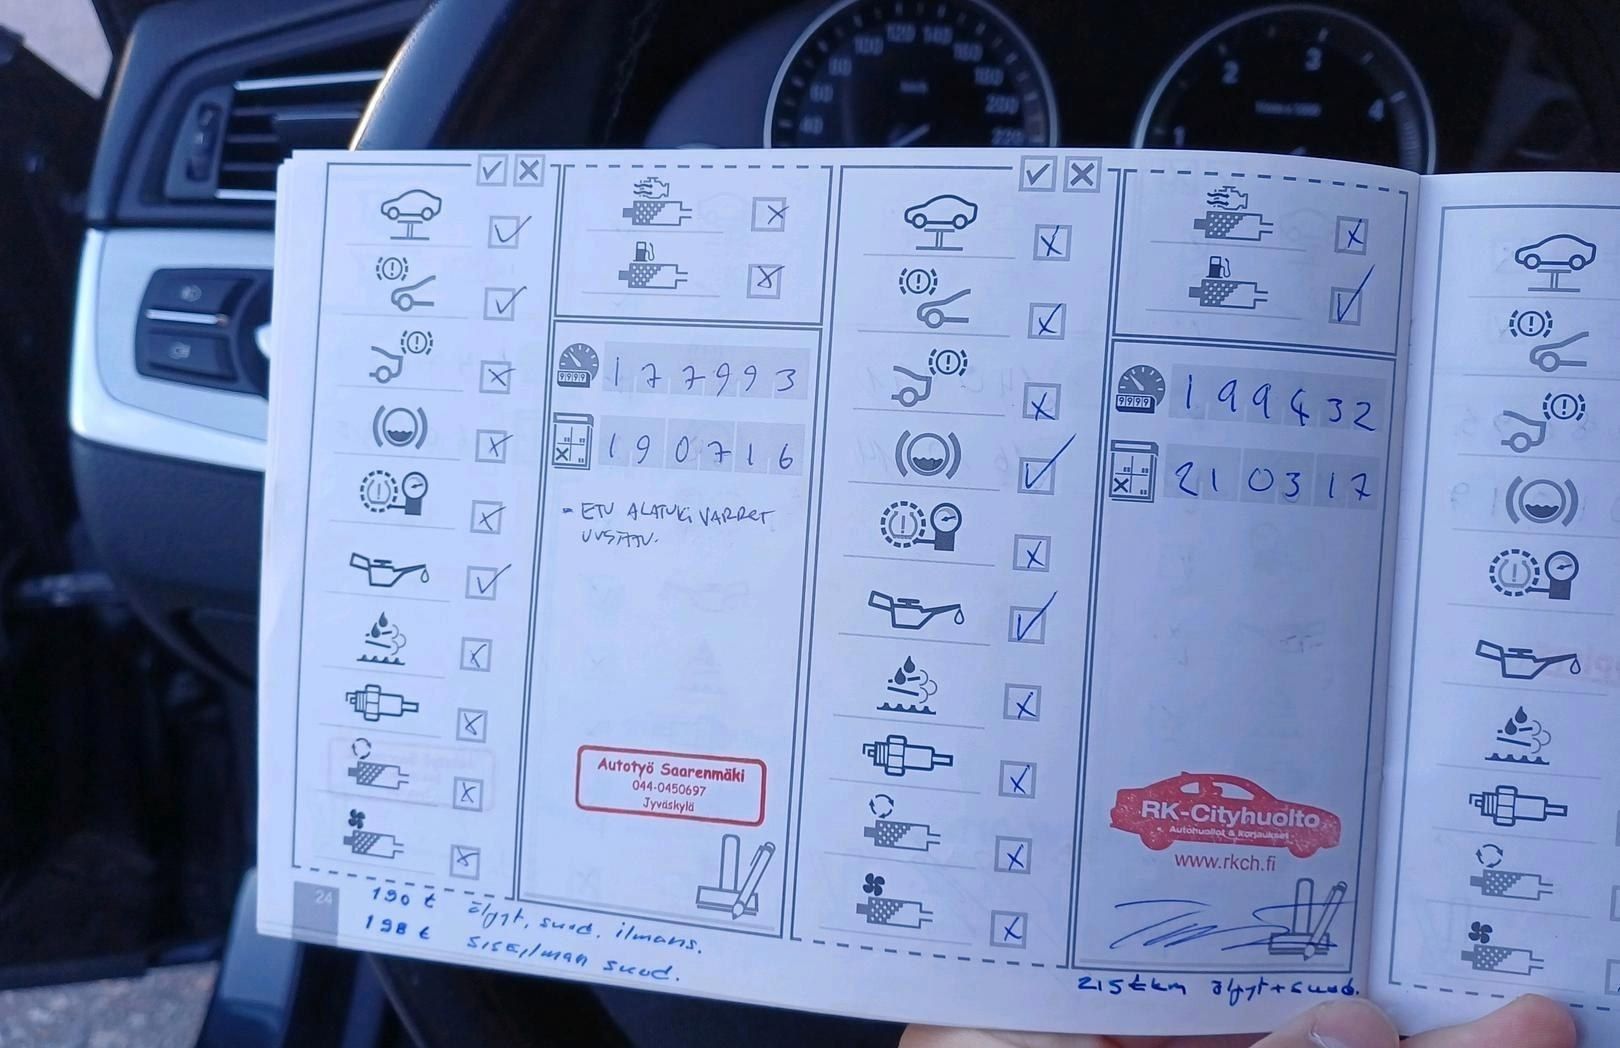 100 120 140
80 160
km/h 180
60 200
40 220
1 2 3 4
177993
190716
- ETU ALATUKIVARRET
UUSITTU.
Autotyö Saarenmäki
044-0450697
Jyväskylä
24
190 t öljyt, suod. ilmans.
198 t sisäilman suod.
199432
210317
RK-Cityhuolto
Autohuollot & korjaukset
www.rkch.fi
215tkm öljyt+suod.